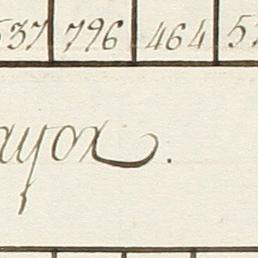 537 796 464 5
ayox.